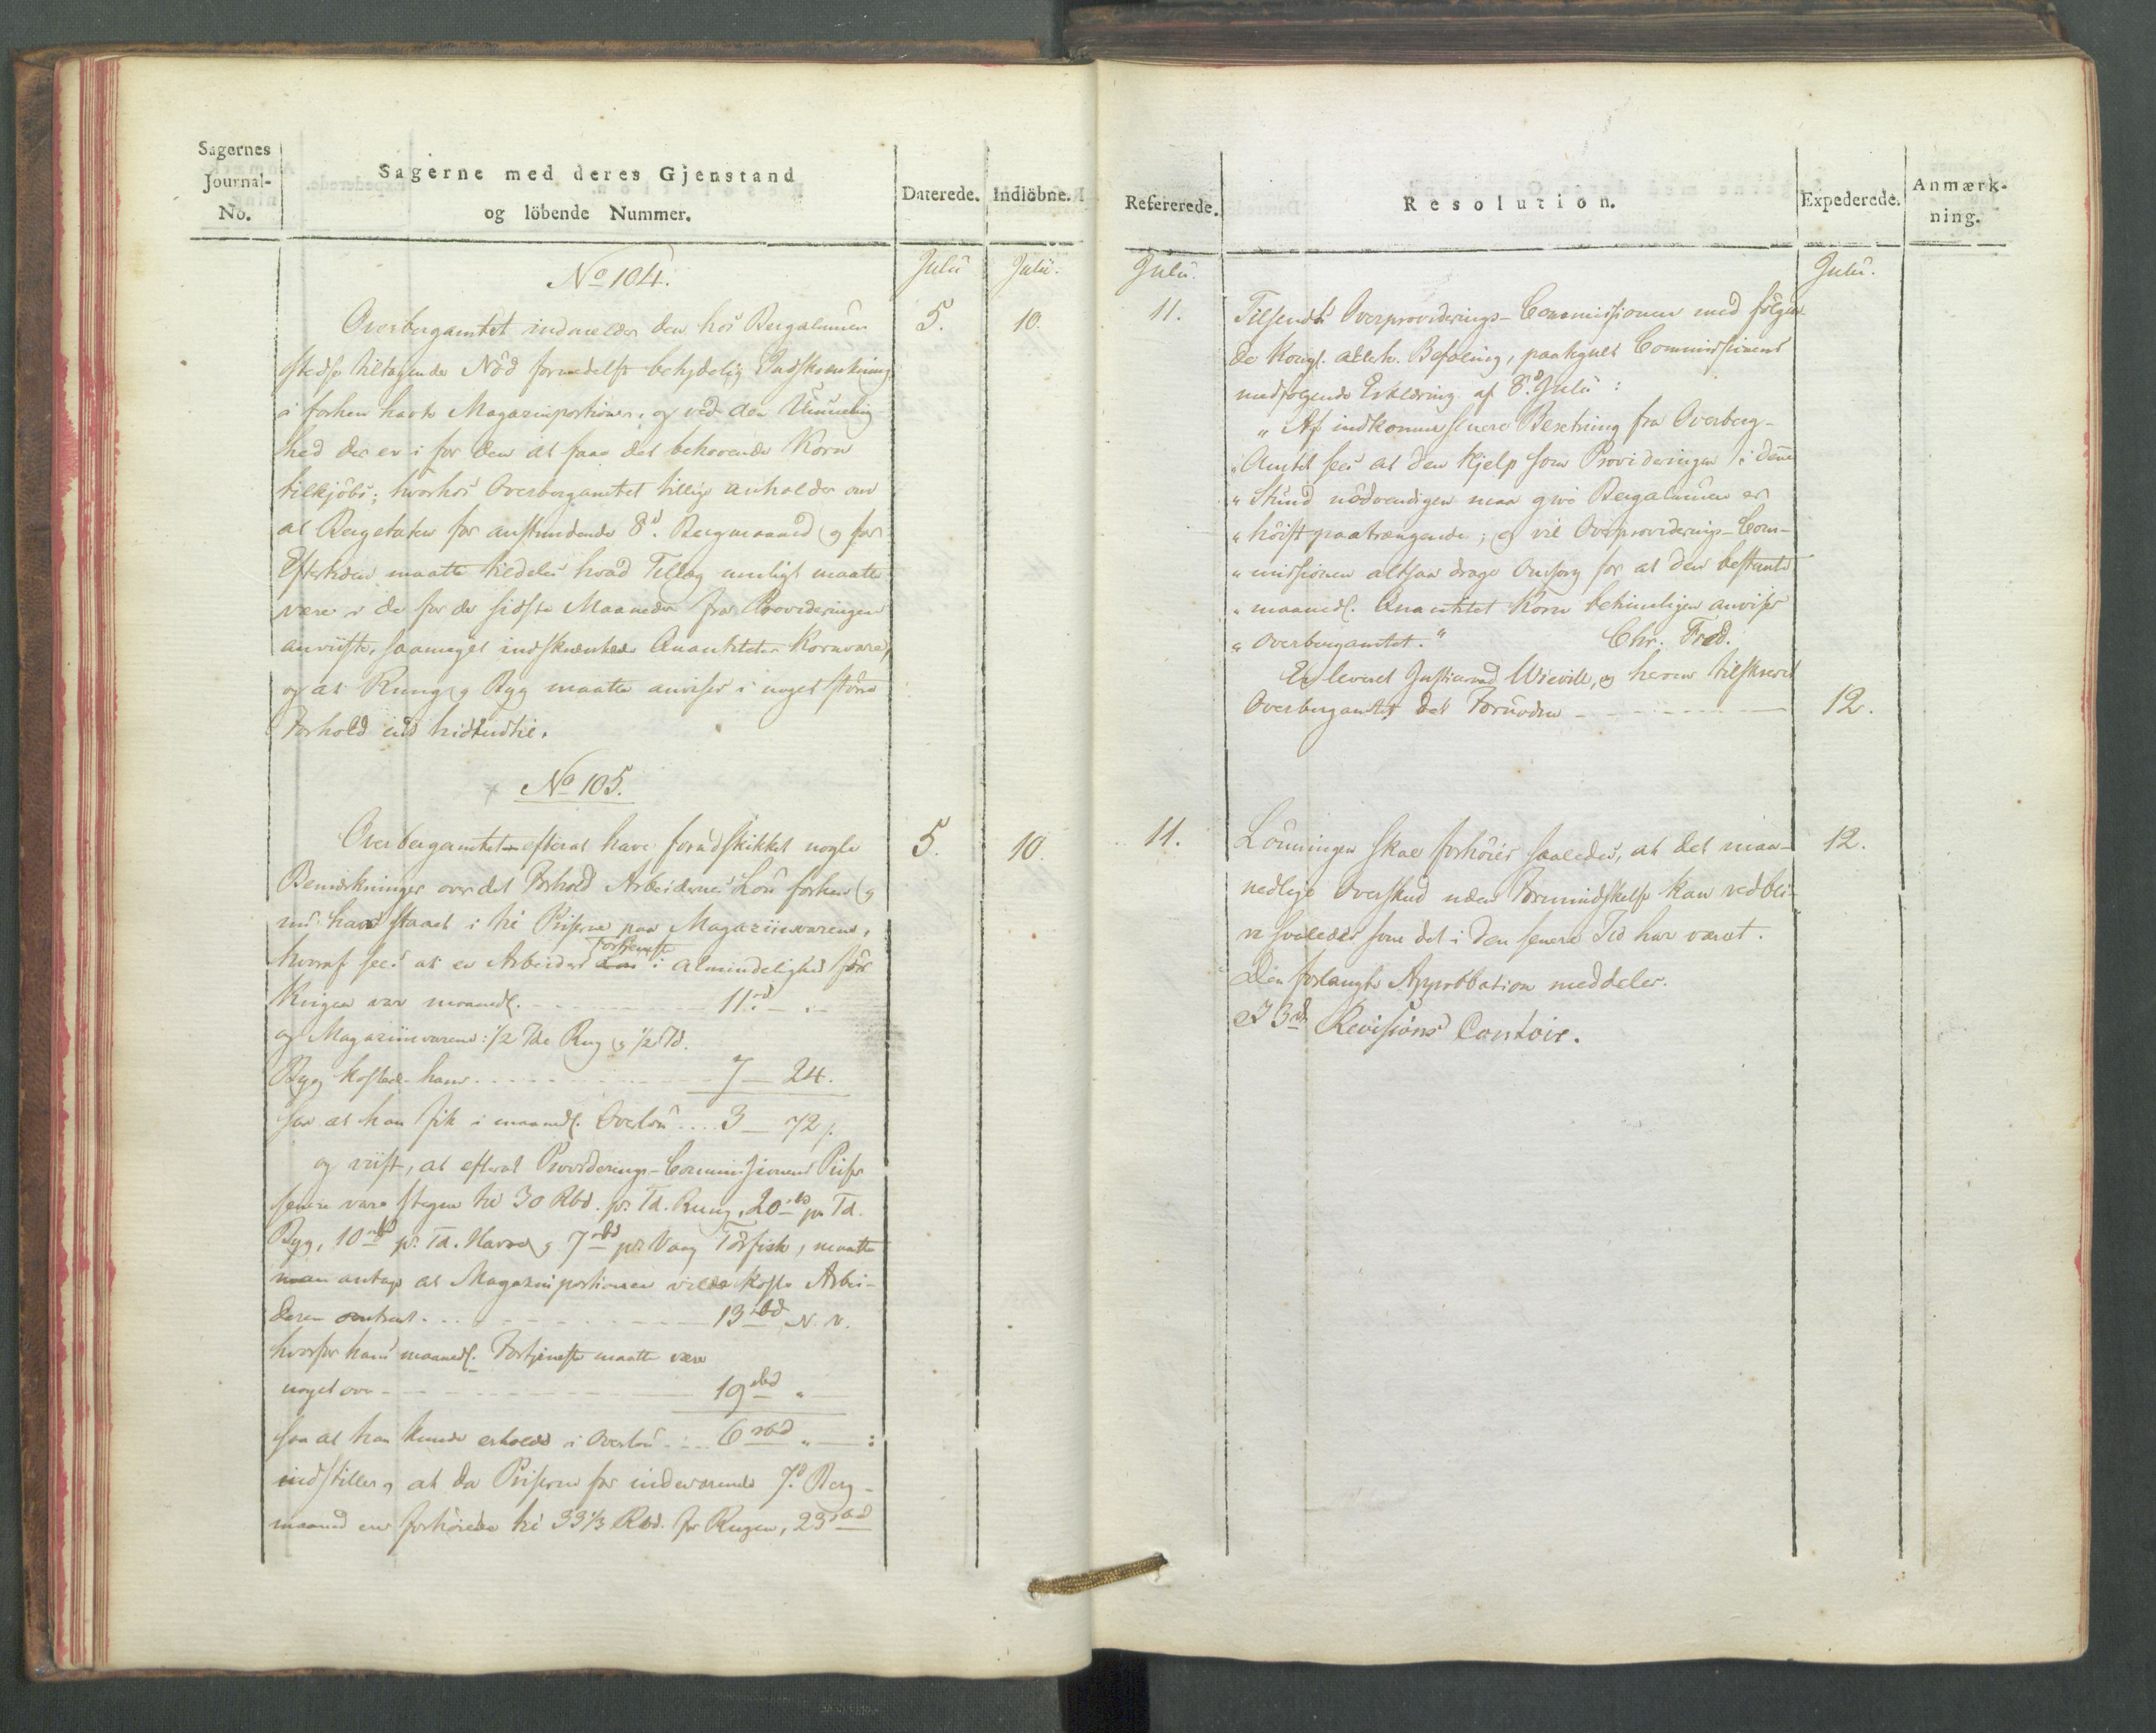 Sagernes
Journal-
No.
Sagerne med deres Gjenstand
og löbende Nummer.
Daterede.
Indlöbne.
No 104.
Julii
Julii.
Overbergamtet indmelder den hos Bergalmuen
5.
10.
stedse tiltagende Nöd formedelst betydelig Indskrænkning
i forhen havte Magazinportioner, og ved den Umuelig
hed der er i for den at faae det behovende Korn
tilkjöbs; hvorhos Overbergamtet tillige anholder om
at Bergetaten for anstundende 8d. Bergmaaned og for
Eftertiden maatte tildeles hvad Tillæg muligt maatte
være i de for de sidste Maaneder fra Provideringen
anviiste, saameget indskrænkede Quantiteter Kornvare,
og at Rug og Byg maatte anvises i noget större
Forhold end hidindtil.
No 105.
Overbergamtet efterat have forudskikket nogle
5.
10.
Bemærkninger over det Forhold Arbeidernes Lön forhen og
nu har staaet i til Priserne paa Magazinvarene,
Fortjeneste
hvoraf sees at en Arbeiders i Almindelighed för
Krigen var maanedl. 11rd
og Magazinvarene: 1/2 Tde Rug og 1/2 Td.
Byg kostede ham 7 - 24.
saa at han fik i maanedl. Overlön 3 - 72 /.
og viist, at efterat Providerings-Commissionens Priser
senere vare stegne til 30 Rbd. pr Td. Rug, 20rbd pr Td.
Byg, 10rbd pr Td. Havre og 7rbd pr Vaag Törfisk, maatte
man antage at Magazinportionen vilde koste Arbei-
deren omtrent 13rbd N. V.
hvorfor hans maanedl. Fortjeneste maatte være
noget over 19rbd "
saa at han kunde erholde i Overlön 6rbd " :
indstiller, at da Priserne for indeværende 7d. Berg-
maaned ere forhöiede til 33 1/3 Rbd. for Rugen, 23rbd
Refererede.
Resolution.
Expederede.
Anmærk-
ning.
Julii.
Julii.
11.
Tilsendes Overproviderings-Commissionen med fölgen
de Kongl. allerh. Befaling, paategnet Commissionens
medfölgende Erklæring af 8d. Julii:
"Af indkommen senere Beretning fra Overberg-
"Amtet sees at den Hjelp som Provideringen i denne
"Stund nödvendigen maa give Bergalmuen er
"höist paatrængende; og vil Overproviderings-Com-
"missionen altsaa drage Omsorg for at den bestemte
"maanedl. Quantitet Korn betimeligen anvises
"Overbergamtet." Chr: Fred.
Er leveret Justitsraad Wievill, og herom tilskrevet
Overbergamtet det Fornödne
12.
11.
Lönningen skal forhöies saaledes, at det maa-
12.
nedlige Overskud uden Formindskelse kan vedbli-
ve saaledes som det i den senere Tid har været.
Den forlangte Approbation meddeles.
I 3die Revisions Contoir.